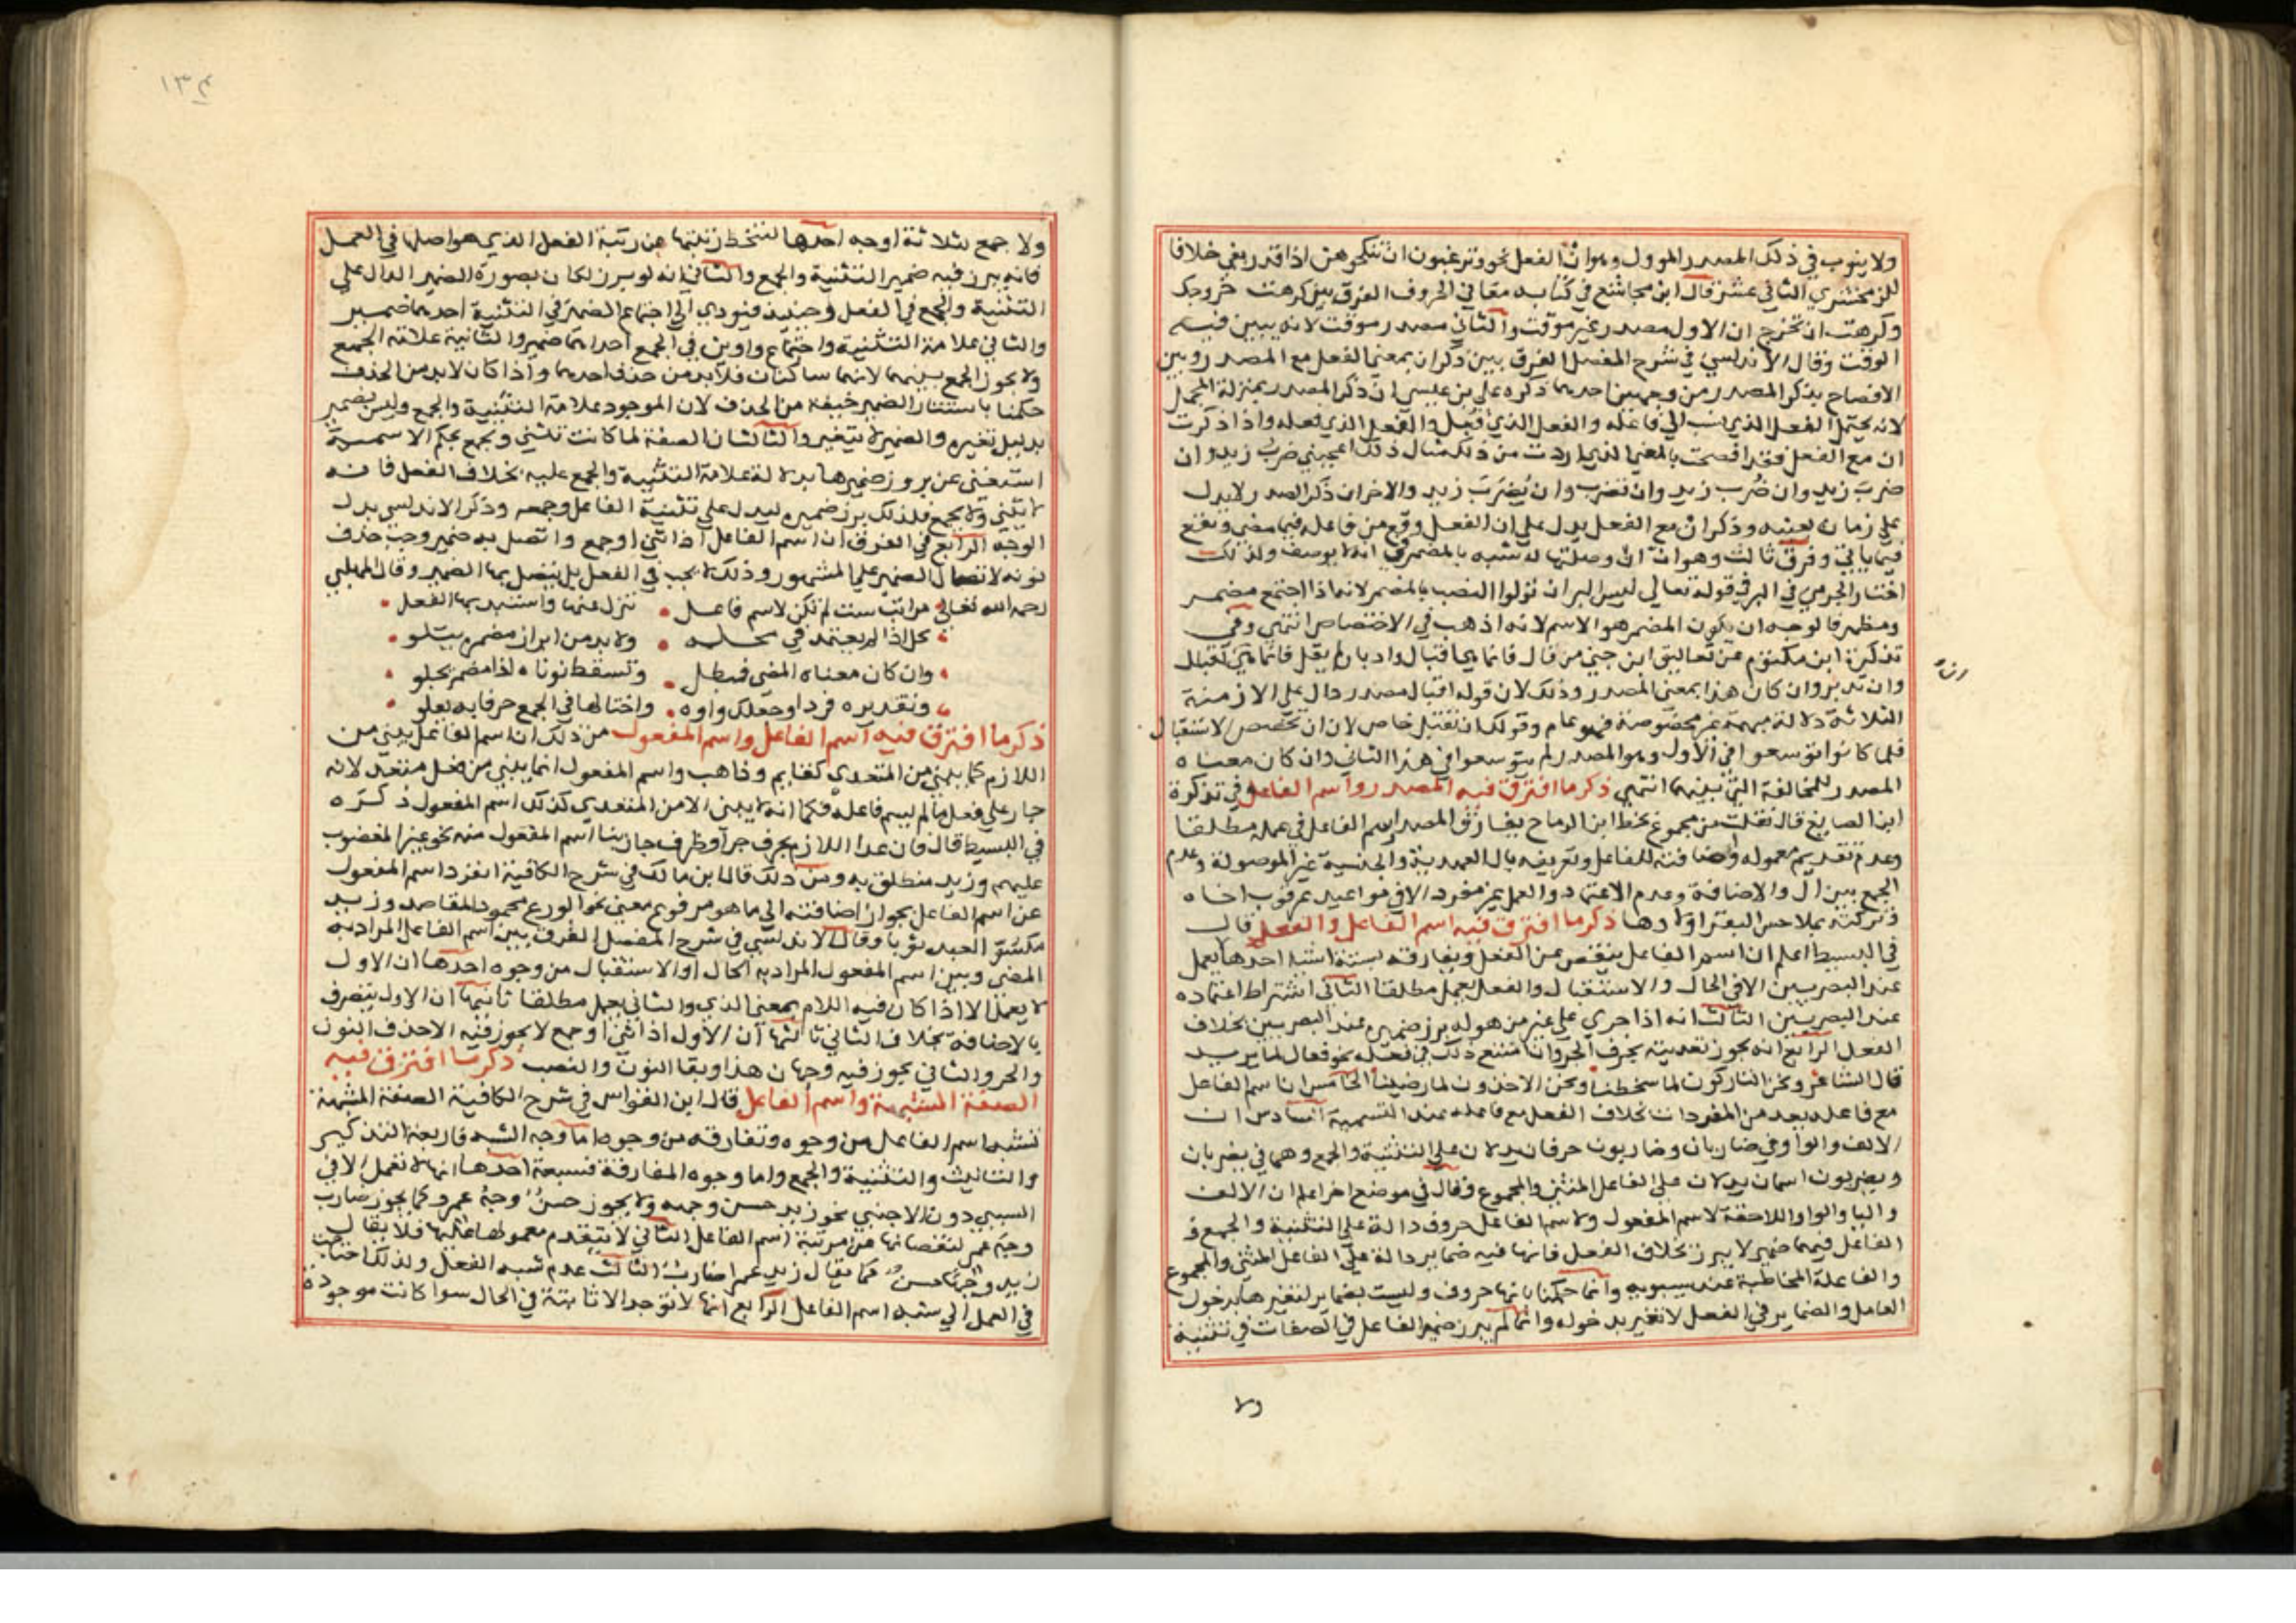 ولا ينوب في ذلك المصدر الموول وهو ان الفعل نحو وترغبون ان تنكحوهن اذا قدر بفي خلافا
للزمخشري الثاني عشر قال ابن مجاشع في كتابه معاني الحروف الفرق بين كرهت خروجك
وكرهت ان تخرج ان الاول مصدر غير موقت والثاني مصدر موقت لانه يبين فيه
الوقت وقال الاندلسي في شرح المفصل الفرق بين ذكر ان بمعنى الفعل مع المصدر وبين
الافصاح بذكر المصدر من وجهين احدهما ذكره علي بن عيسى ان ذكر المصدر بمنزلة المجمل
لانه يحتمل الفعل الذي نسب الي فاعله والفعل الذي فُعِل والفعل الذي تفعله واذا ذكرت
ان مع الفعل فقد افصحت بالمعنى الذي اردت من ذلك مثال ذلك اعجبني ضرب زيد وان
ضرَب زيد وان ضُرب زيد وان تضرب وان يُضرَب زيد والاخر ان ذكر المصدر لا يدل
على زمان بعينه وذكر ان مع الفعل يدل على ان الفعل وقع من فاعله فيما مضى ويقع
فيما ياتي وفرق ثالث وهو ان ان وصلتها له شبه بالمضمر في انه لا يوصف ولذلك
اختار الجرمي في البر في قوله تعالي ليس البر ان تولوا النصب بالمضمر لانه اذا اجتمع مضمر
ومظهر فالوجه ان يكون المضمر هو الاسم لانه اذهب في الاختصاص انتهى وفي
تذكرة ابن مكتوم عن تعاليق ابن جني من قال فانما هي اقبال وادبار لم يقل فانما هي ان تقبل
وان تدبر وان كان هذا بمعنى المصدر وذلك لان قوله اقبال مصدر دال على الازمنة
الثلاثة دلالة مبهمة غير مخصوصة فهو عام وقولك ان تقبل خاص لان ان تخصص الاستقبال
فلما كانوا توسعوا في الاول وهو المصدر لم يتوسعوا في هذا الثاني وان كان معناه
المصدر للمخالفة التي بينهما انتهى ذكر ما افترق فيه المصدر واسم الفاعل في تذكرة
ابن الصايغ قال نقلت من مجموع بخط ابن الرماح يفارق المصدر اسم الفاعل في عمله مطلقا
وعدم تقديم معموله واضافته للفاعل وتعريفه بال العهدية والجنسية غير الموصولة وعدم
الجمع بين ال والاضافة وعدم الاعتماد والعمل غير مفرد الا في مواعيد عرقوب اخاه
وتركته بملاحس البقر اولادها ذكر ما افترق فيه اسم الفاعل والفعل قال
في البسيط اعلم ان اسم الفاعل ينقص عن الفعل ويفارقه بستة اشيا احدها يعمل
عند البصريين الا في الحال والاستقبال والفعل يعمل مطلقا الثاني اشتراط اعتماده
عند البصريين الثالث انه اذا جري على غير من هو له برز ضميره عند البصريين بخلاف
الفعل الرابع انه يجوز تعديته بحرف الجر وان امتنع ذلك في فعله نحو فعال لما يريد
قال الشاعر ونحن التاركون لما سخطنا ونحن الاخذون لما رضينا الخامس ان اسم الفاعل
مع فاعله يعد من المفردات بخلاف الفعل مع فاعله عند التسمية السادس ان
الالف والواو في ضاربان وضاربون حرفان يدلان على التثنية والجمع وهما في يضربان
ويضربون اسمان يدلان على الفاعل المثني والمجموع وقال في موضع اخر اعلم ان الالف
واليا والواو اللاحقة لاسم المفعول ولاسم الفاعل حروف دالة على التثنية والجمع و
الفاعل فيهما ضمير لا يبرز بخلاف الفعل فانها فيه ضماير دالة علي الفاعل المثني والمجموع
والفاعلة المخاطبة عند سيبويه وانما حكمنا بانها حروف وليست بضماير لتغيرها بدخول
العامل والضماير في الفعل لا تغير بدخوله وانما لم يبرز ضمير الفاعل في الصفات في تثنية
ولا
١٣٤
ولا جمع لثلاثة اوجه احدها لتنحط رتبتها عن رتبة الفعل الذي هو اصلها في العمل
فانه يبرز فيه ضمير التثنية والجمع والثاني انه لو برز لكان بصورة الضمير الدال علي
التثنية والجمع في الفعل وحينيذ فيودي الي اجتماع الضمير في التثنية احدهما ضمير
والثاني علامة التثنية واجتماع واوين في الجمع احداهما ضمير والثانية علامة الجمع
ولا يجوز الجمع بينهما لانهما ساكنان فلابد من حذف احدهما واذا كان لابد من الحذف
حكمنا باستتار الضمير خيفة من الحذف لان الموجود علامة التثنية والجمع وليس بضمير
بدليل تغيره والضمير لا يتغير والثالث ان الصفة لما كانت تثني وتجمع بحكم الاسمية
استغني عن بروز ضميرها بدلالة علامة التثنية والجمع عليه بخلاف الفعل فانه
لا يثنى ولا يجمع فلذلك برز ضميره ليدل على تثنية الفاعل وجمعه وذكر الاندلسي بدل
الوجه الرابع في الفرق ان اسم الفاعل اذا ثني اوجمع واتصل به ضمير وجب حذف
نونه لاتصال الضمير علي المشهور وذلك لا يجب في الفعل بل يتصل بها الضمير وقال المهلبي
رحمه الله تعالي مراتب ست لم تكن لاسم فاعل تنزل عنها واستبد بها الفعل
يحل اذا لم يعتمد في محله ولا بد من ابراز مضمره يتلو
وان كان معناه المضي فمبطل وتسقط نوناه اذا مضمر يخلو
وتقديره فردا وجعلك واوه واختالها في الجمع حرفا به يعلو
ذكر ما افترق فيه اسم الفاعل واسم المفعول من ذلك ان اسم الفاعل يبني من
اللازم كما يبني من المتعدي كقايم وذاهب واسم المفعول انما يبني من فعل متعد لانه
جار علي فعل ما لم يسم فاعله فكما انه لا يبنى الا من المتعدي كذلك اسم المفعول ذكره
في البسيط قال فان عدا اللازم بحرف جر اوظرف جاز بنا اسم المفعول منه نحو غير المغضوب
عليهم وزيد منطلق به ومن ذلك قال ابن مالك في شرح الكافية انفرد اسم المفعول
عن اسم الفاعل بجواز اضافته الي ما هو مرفوع معنى نحو الورع محمود المقاصد وزيد
مكسو العبد ثوبا وقال الاندلسي في شرح المفصل الفرق بين اسم الفاعل المراد به
المضي وبين اسم المفعول المراد به الحال او الاستقبال من وجوه احدها ان الاول
لا يعمل الا اذا كان فيه اللام بمعنى الذي والثاني يعمل مطلقا ثانيها ان الاول يتصرف
بالاضافة بخلاف الثاني ثالثها ان الاول اذا ثني اوجمع لا يجوز فيه الا حذف النون
والجر والثاني يجوز فيه وجهان هذا وبقا النون والنصب ذكر ما افترق فيه
الصفة المشبهة واسم الفاعل قال ابن القواس في شرح الكافية الصفة المشبهة
تشبه اسم الفاعل من وجوه وتفارقه من وجوه اما وجه الشبه فاربعة التذكير
والتانيث والتثنية والجمع واما وجوه المفارقة فسبعة احدها انها لا تعمل الا في
السببي دون الاجنبي نحو زيد حسن وجهه ولا يجوز حسن وجه عمرو كما يجوز ضارب
وجه عمر لنقصانها عن مرتبة اسم الفاعل الثاني لا يتقدم معمولها عليها فلا يقال
زيد وجهَا حسن كما يقال زيد عمرا ضارب الثالث عدم شبه الفعل ولذلك احتاجت
في العمل الي شبه اسم الفاعل الرابع انها لا توجد الا ثابتة في الحال سوا كانت موجودة